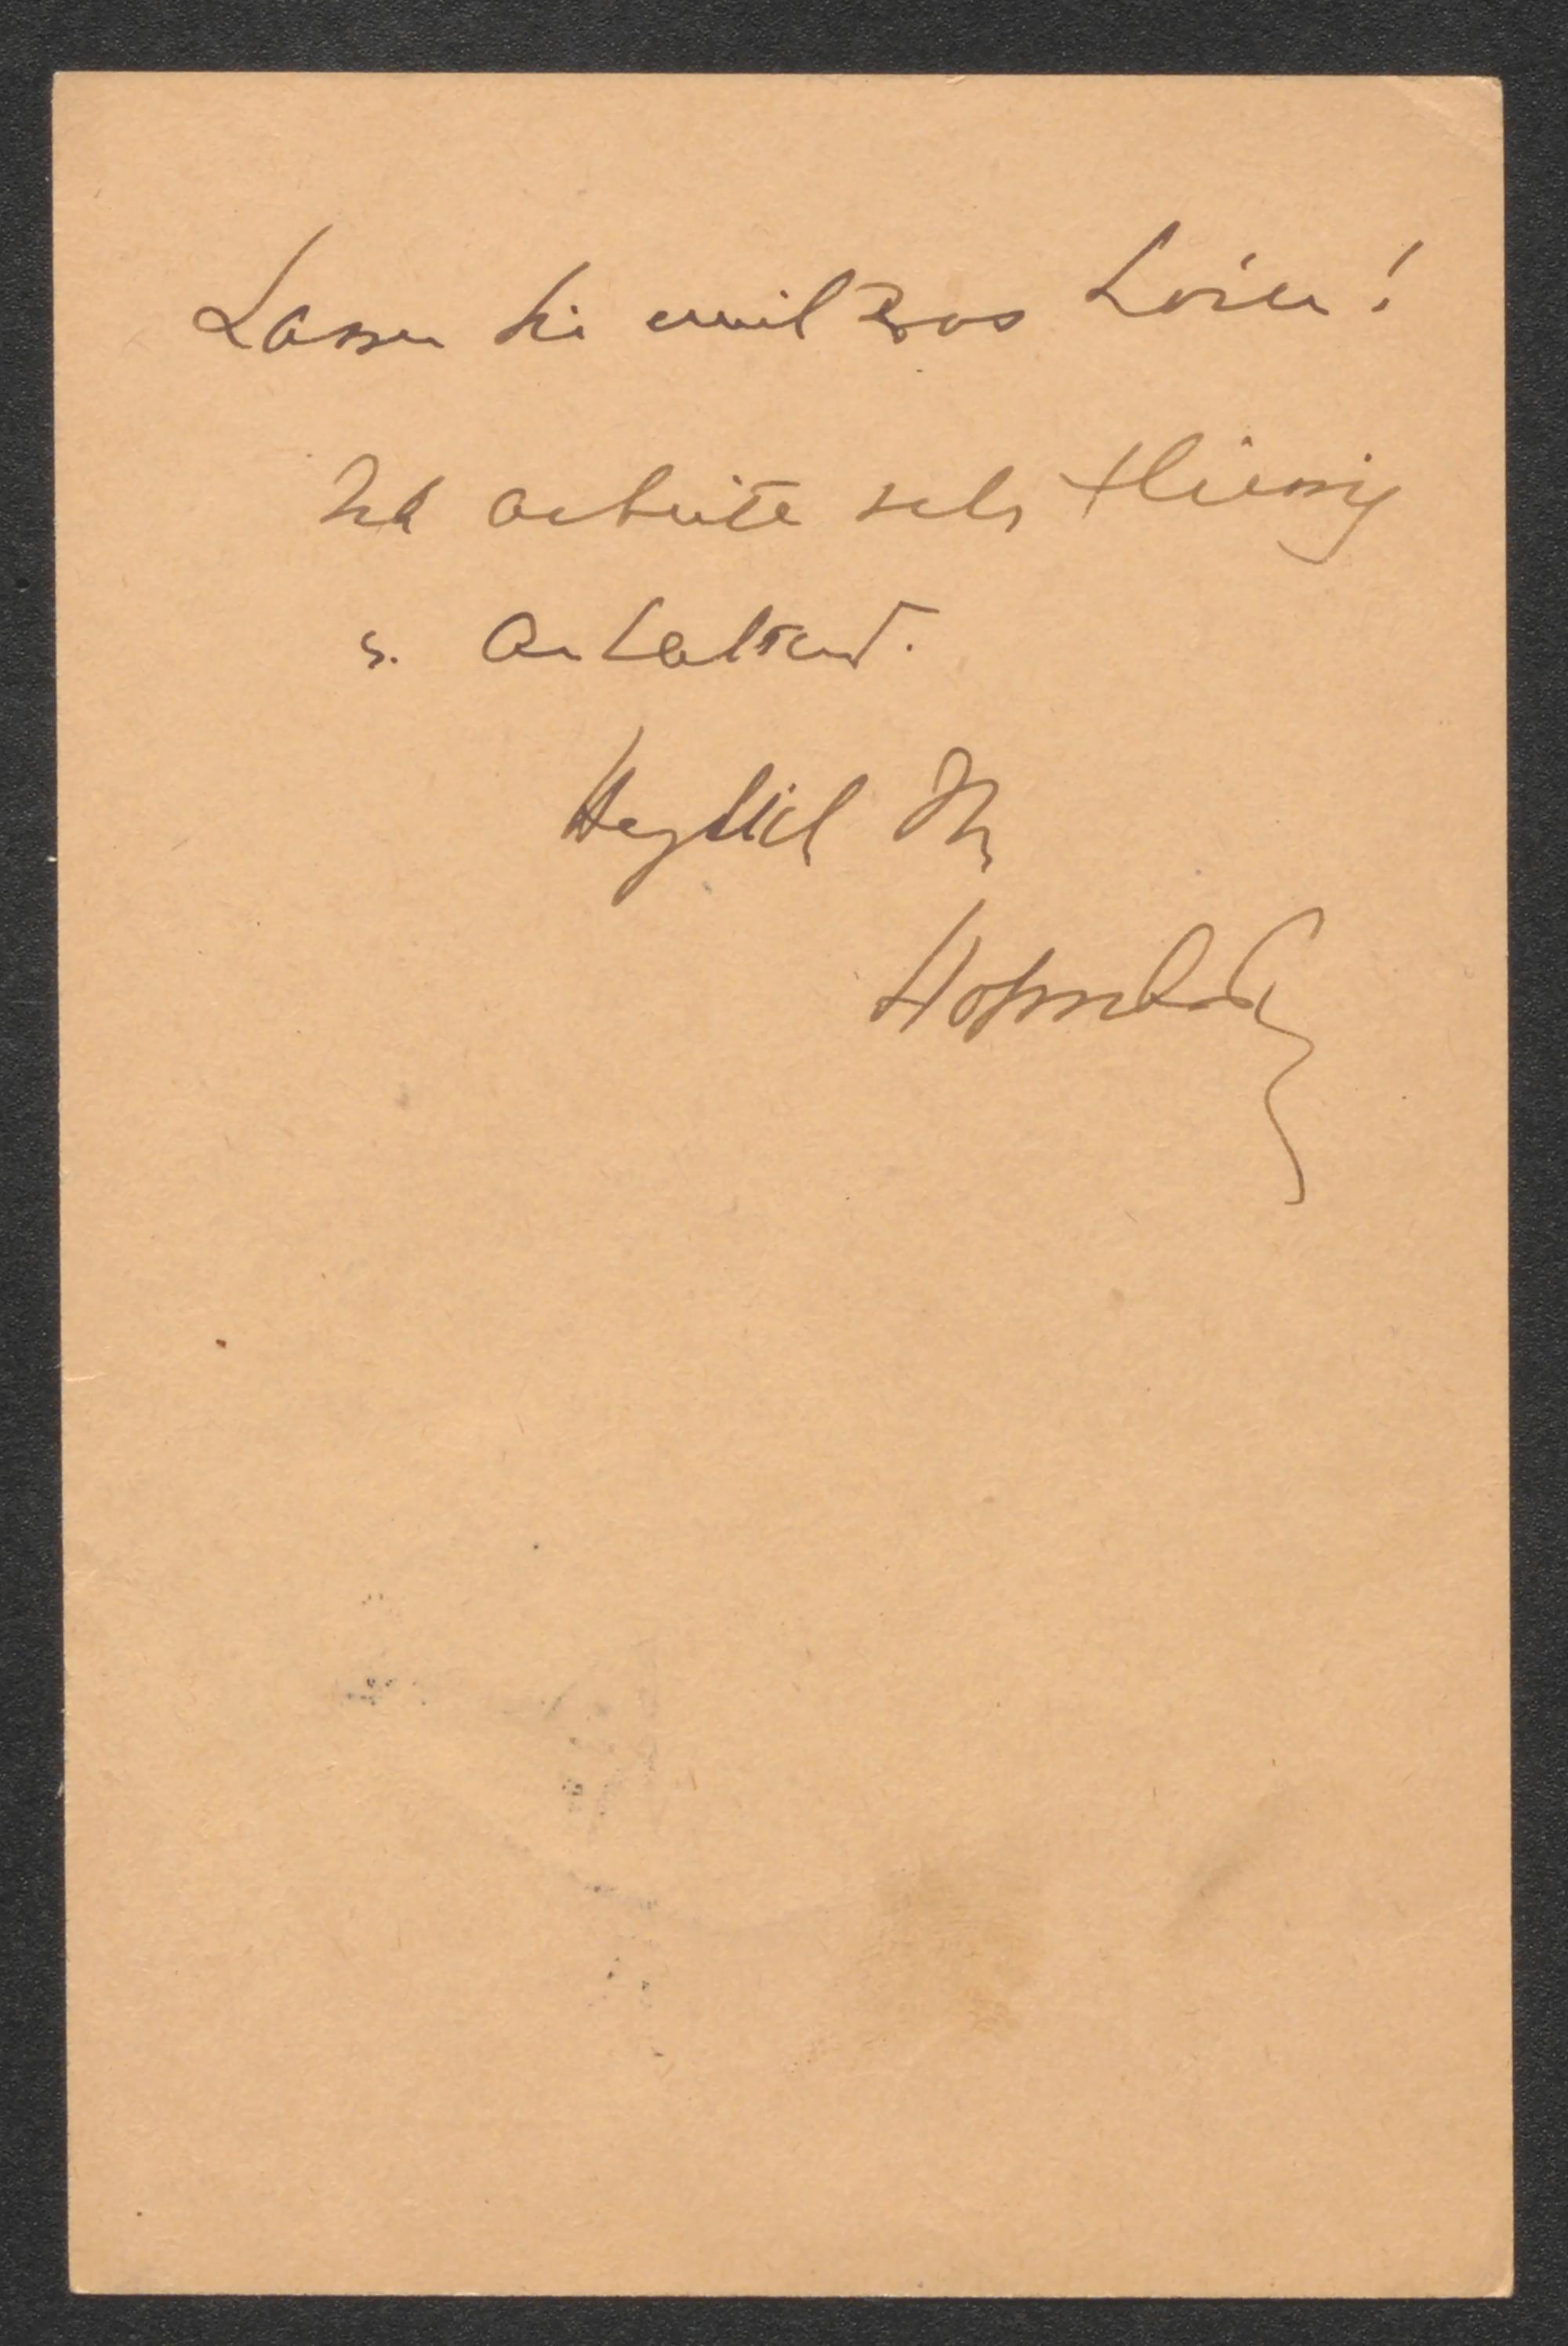 Lassen Sie einmal was hören!
Ich arbeite sehr fleissig
u. anhaltend.
Herzlich Ihr
Hofmannsthal